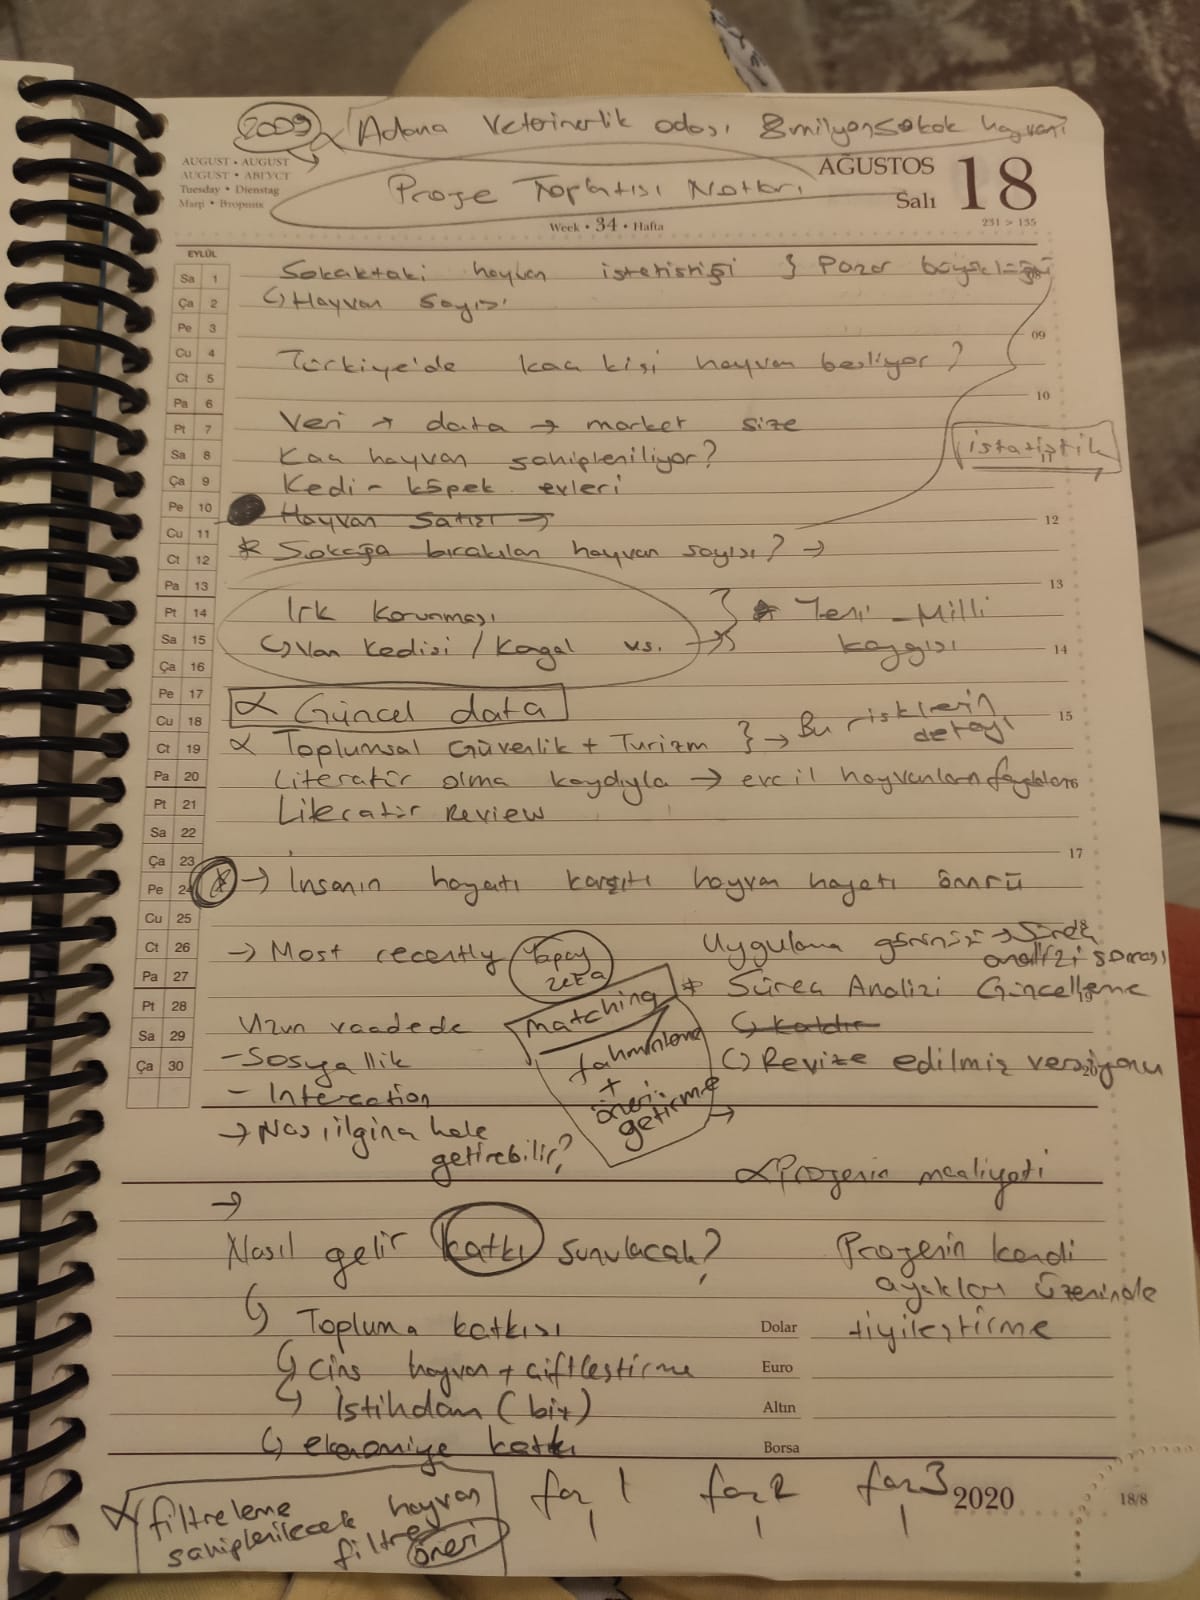 2009 Adana Veterinerlik odası 8milyon sokak hayvanı
AUGUST • AUGUST
AUGUST • АВГУСТ
Tuesday • Dienstag
Mardi • Вторник
AĞUSTOS 18
Salı
231 > 135
Proje Toplatısı Notları
Week • 34 • Hafta
EYLÜL
Sa 1
Ça 2
Pe 3
Cu 4
Ct 5
Pa 6
Pt 7
Sa 8
Ça 9
Pe 10
Cu 11
Ct 12
Pa 13
Pt 14
Sa 15
Ça 16
Pe 17
Cu 18
Ct 19
Pa 20
Pt 21
Sa 22
Ça 23
Pe 24
Cu 25
Ct 26
Pa 27
Pt 28
Sa 29
Ça 30
Sokaktaki hayvan istatistiği } Pazar büyüklüğü
↳ Hayvan sayısı
09
Türkiye'de kaç kişi hayvan besliyor?
10
Veri → data → market size
istatistik
11
Kaç hayvan sahipleniliyor?
Kedi - köpek evleri
Hayvan Satışı →
12
* Sokağa bırakılan hayvan sayısı? →
13
Irk Korunması } * Yerli - Milli
↳ Van Kedisi / Kagal vs. → kaygısı
14
α Güncel data
15
α Toplumsal Güvenlik + Turizm } → Bu risklerin detayı
Literatür olma kaydıyla → evcil hayvanların faydaları
16
Literatür Review
17
* → İnsanın hayatı karşıtı hayvan hayatı ömrü
→ Most recently Yapay zeka
Uygulama → Süreç analizi sonrası
matching
tahminleme
+
öneri
getirme →
* Süreç Analizi Güncelleme
↳ kaldır
↳ Revize edilmiş versiyonu
Uzun vaadede
- Sosyallik
- Interaction
→ Nasıl ilginç hale getirebilir?
α Projenin maaliyeti
→
Nasıl gelir katkı sunulacak?
↳ Topluma katkısı
↳ Cins hayvan + çiftleştirme
↳ İstihdam
↳ ekonomiye katkı
Projenin kendi
ayakları üzerinde
Dolar
Euro
Altın
Borsa
faz 1 faz 2 faz 3
2020
18/8
α filtreleme
sahiplenilecek hayvan
filtre öneri